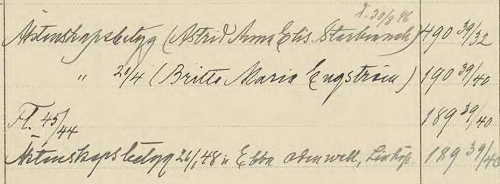 d. 30/9 46
Äktenskapsbetyg (Astrid Anna Elis. Starbrunck) 190 39/32
" 23/4 (Britta Maria Engström) 190 39/40
Fl. 45/44 189 39/40
Äktenskapsbetyg 26/1 48 m Ebba Odenwell, Linköp. 189 39/40